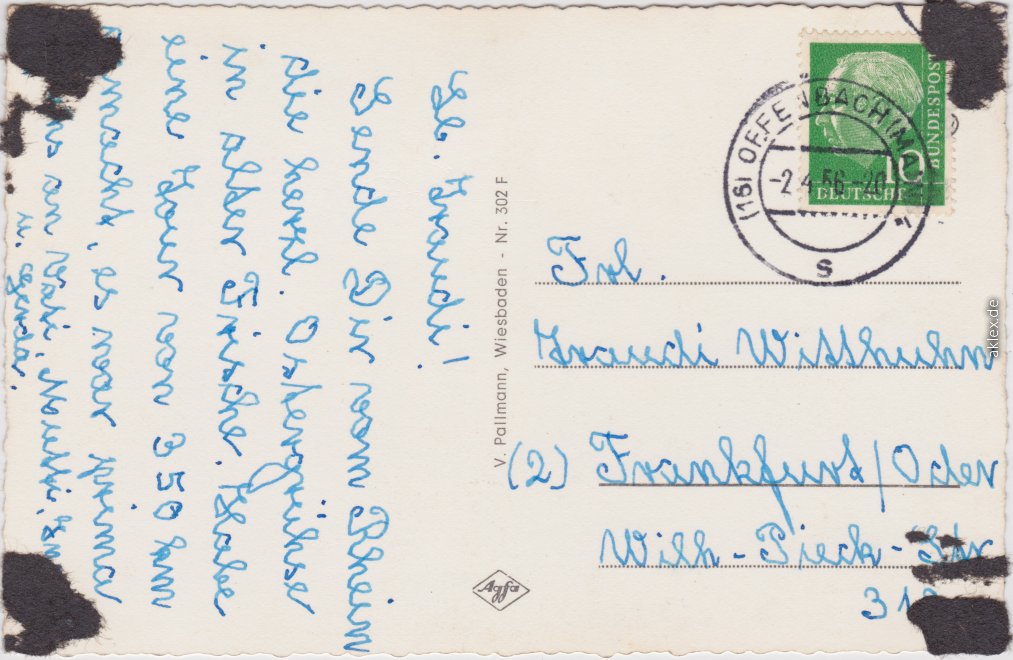 Lb. Traudi!
Sende Dir vom Rhein
die herzl. Ostergrüsse
in alter Frische. Habe
eine Tour von 350 km
gemacht, es war prima
an Vati, Mutti,
u. Gerda.
V. Pallmann, Wiesbaden - Nr. 302 F
Agfa
(16) OFFENBACH (MAIN) 1
-2.4.56-20
s
DEUTSCHE
BUNDESPOST
10
Frl.
Traudi Witthuhn
(2) Frankfurt/Oder
Wilh-Pieck-Str
31
aklex.de